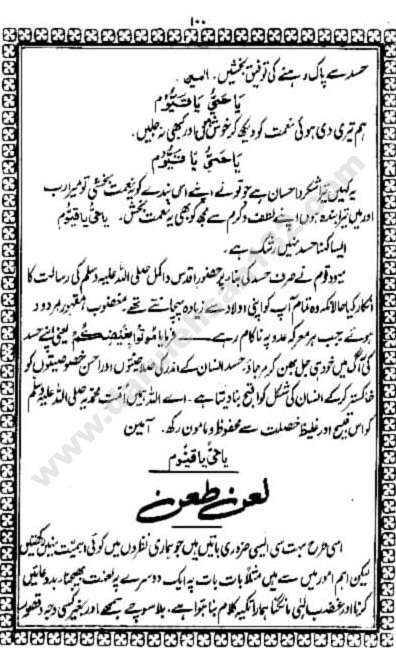 ۱۰۰
حسد سے پاک رہنے کی توفیق بخشیں۔ آمین۔
یَا حَیُّ یَا قَیُّوم
ہم تیری دی ہوئی نعمت کو دیکھ کر خوش ہوں اور کبھی نہ جلیں۔
یَا حَیُّ یَا قَیُّوم
یہ کہیں تیرا شکر و احسان ہے جو تو نے اپنے اس بندے کو یہ نعمت بخشی تو میرا رب
اور میں تیرا بندہ ہوں اپنے لطف و کرم سے مجھ کو بھی یہ نعمت بخش۔ یا حیُّ یا قیّوم
ایسا کہنا حسد نہیں رشک ہے۔
یہود قوم نے صرف حسد کی بنا پر حضور اقدس و اکمل صلی اللہ علیہ وسلم کی رسالت کا
انکار کیا حالانکہ وہ تمام آپ کو اپنی اولاد سے زیادہ پہچانتے تھے مغضوب و مقہور و مردود
ہوئے جب ہر معرکہ عدو پہ ناکام رہے — فرمایا مُوتُوا بِغَیْضِکُمْ یعنی اپنے حسد
کی آگ میں خود ہی جل بھن کر مر جاؤ، حسد انسان کے اندر کی صلاحیتوں اور احسن خصوصیتوں کو
خاکستر کر کے انسان کی شکل کو قبیح بنا دیتا ہے۔ اے اللہ ہمیں امّت محمّدیہ صلی اللہ علیہ وسلم
کو اس قبیح اور غلیظ خصلت سے محفوظ و مامون رکھ۔ آمین
یا حیُّ یا قیّوم
لعن طعن
اسی طرح بہت سی ایسی ضروری باتیں ہیں جو ہماری نظروں میں کوئی اہمیّت نہیں رکھتیں
لیکن اہم امور میں سے ہیں مثلاً بات بات پہ ایک دوسرے پر لعنت بھیجنا، بددعائیں
کرنا اور غضب الٰہی مانگنا ہمارا تکیہ کلام بنا ہوا ہے، بلا سوچے سمجھے اور بغیر کسی وجہ و قصور